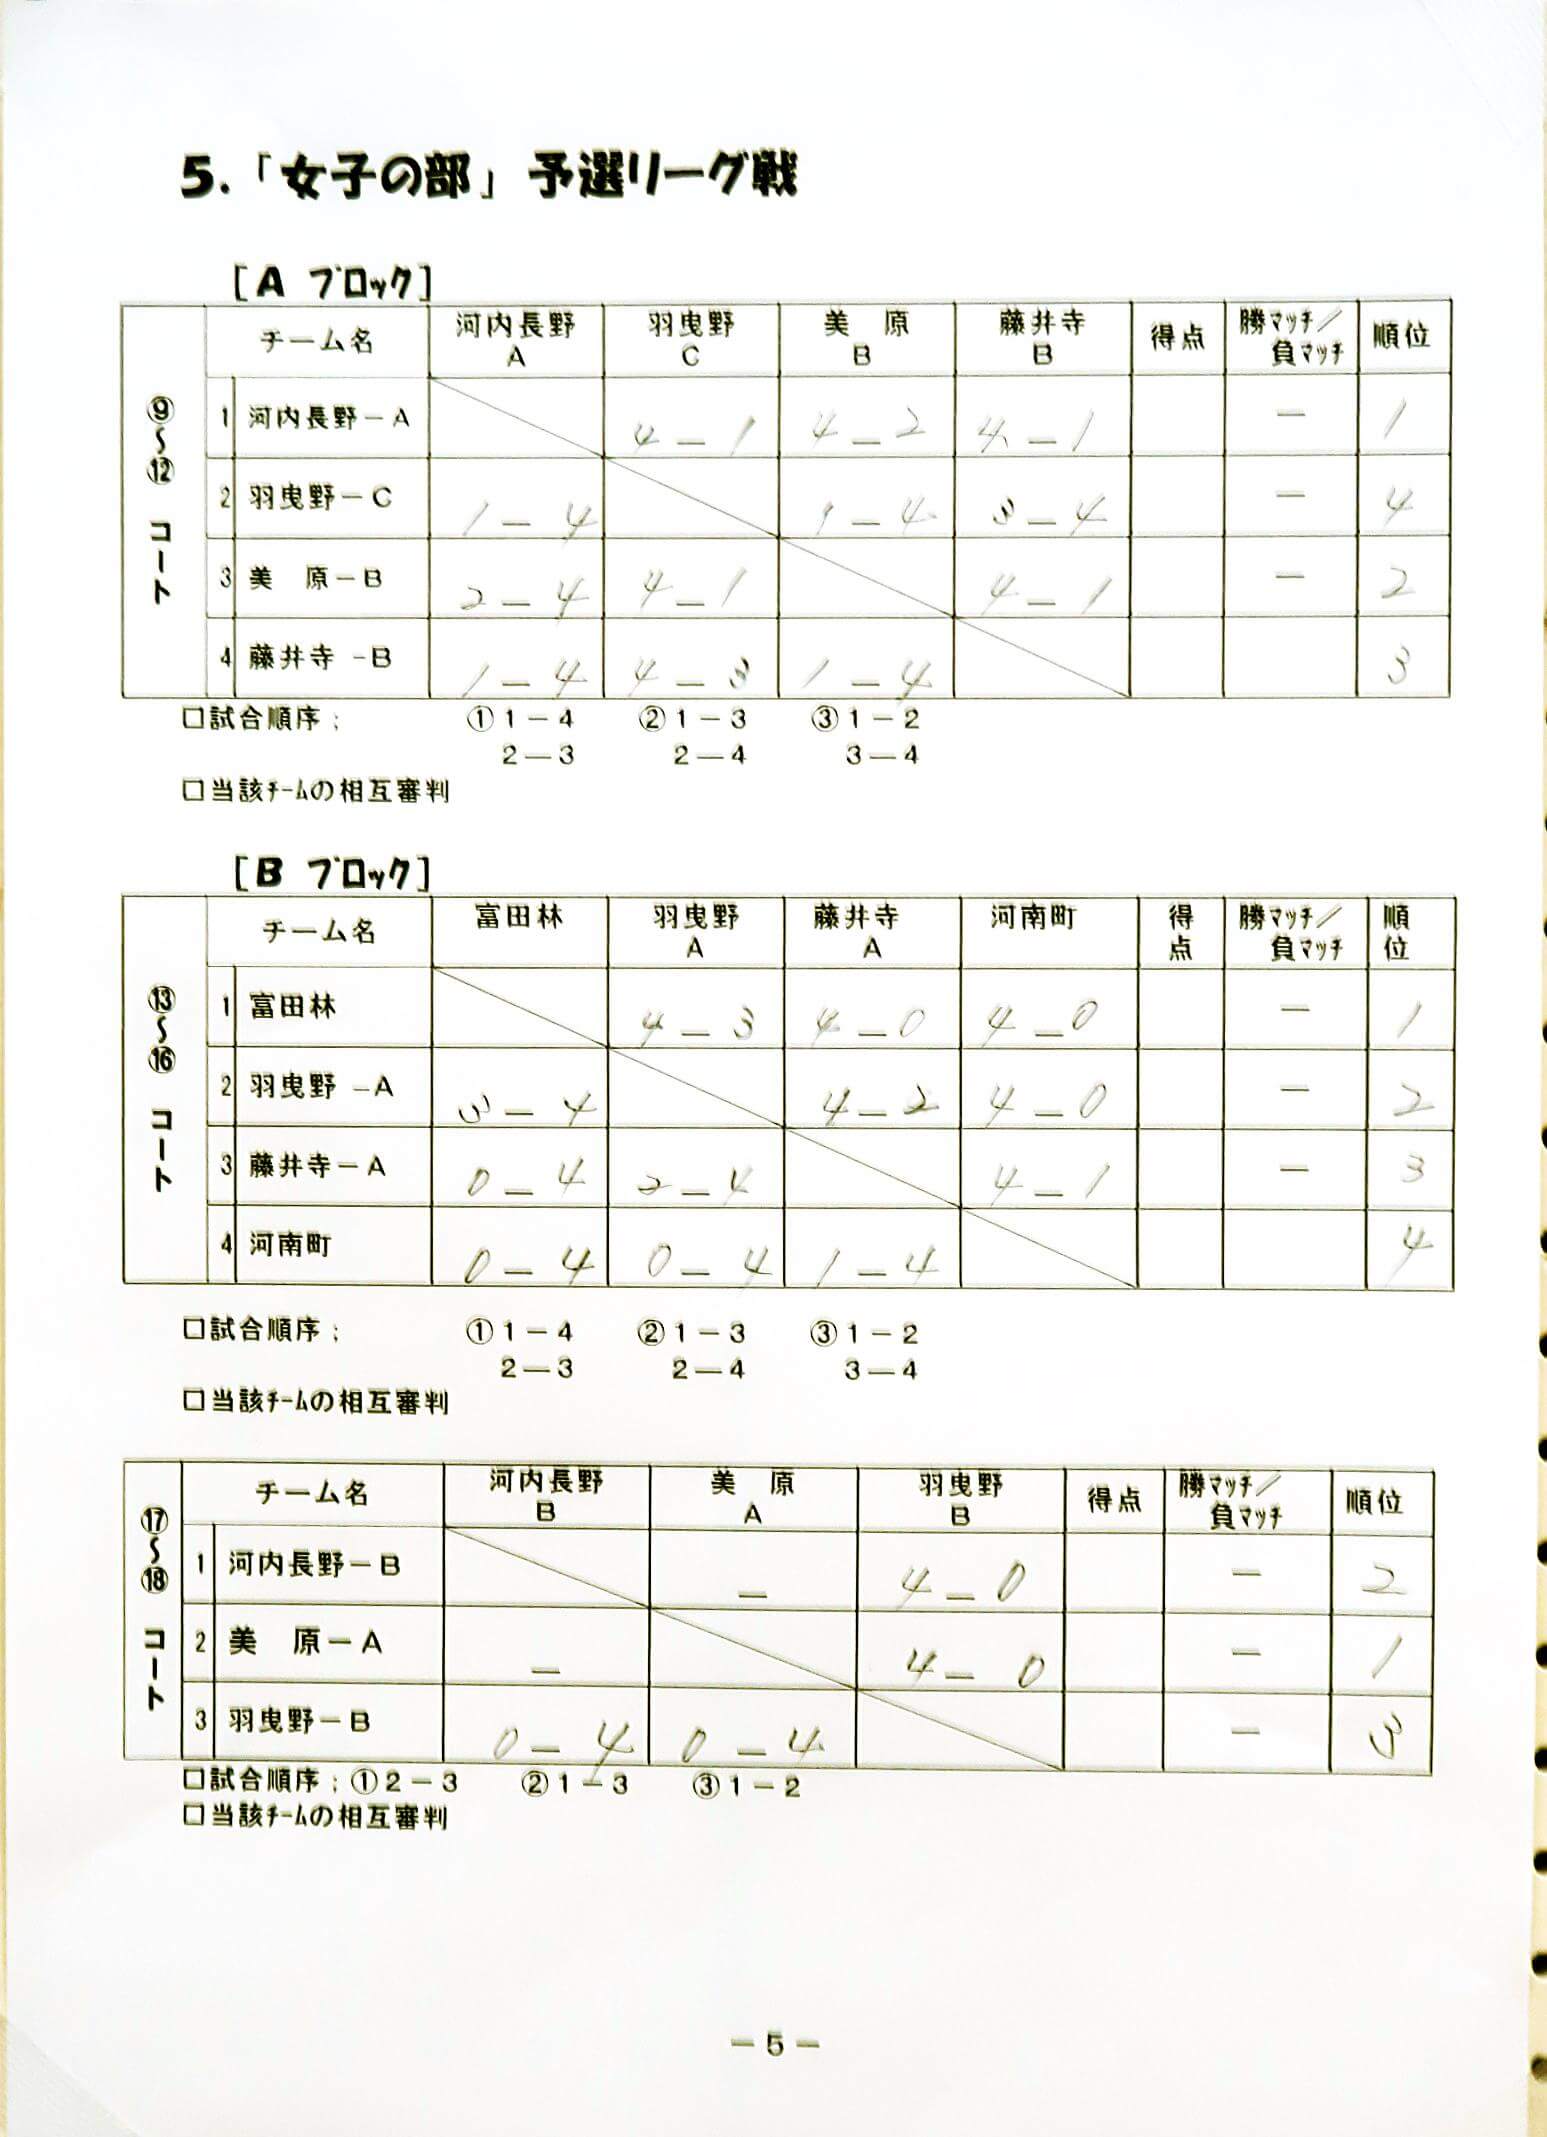 5.「女子の部」予選リーグ戦
[A ブロック]
⑨～⑫ コート
チーム名 河内長野 A 羽曳野 C 美 原 B 藤井寺 B 得点 勝マッチ／負マッチ 順位
1 河内長野－A 4－1 4－2 4－1 － 1
2 羽曳野－C 1－4 1－4 3－4 － 4
3 美 原－B 2－4 4－1 4－1 － 2
4 藤井寺 -B 1－4 4－3 1－4 3
□試合順序； ①1－4 ②1－3 ③1－2
2－3 2－4 3－4
□当該ﾁｰﾑの相互審判
[B ブロック]
⑬～⑯ コート
チーム名 富田林 羽曳野 A 藤井寺 A 河南町 得点 勝マッチ／負マッチ 順位
1 富田林 4－3 4－0 4－0 － 1
2 羽曳野 －A 3－4 4－2 4－0 － 2
3 藤井寺－A 0－4 2－4 4－1 － 3
4 河南町 0－4 0－4 1－4 4
□試合順序； ①1－4 ②1－3 ③1－2
2－3 2－4 3－4
□当該ﾁｰﾑの相互審判
⑰～⑱ コート
チーム名 河内長野 B 美 原 A 羽曳野 B 得点 勝マッチ／負マッチ 順位
1 河内長野－B － 4－0 － 2
2 美 原－A － 4－0 － 1
3 羽曳野－B 0－4 0－4 － 3
□試合順序；①2－3 ②1－3 ③1－2
□当該ﾁｰﾑの相互審判
－5－